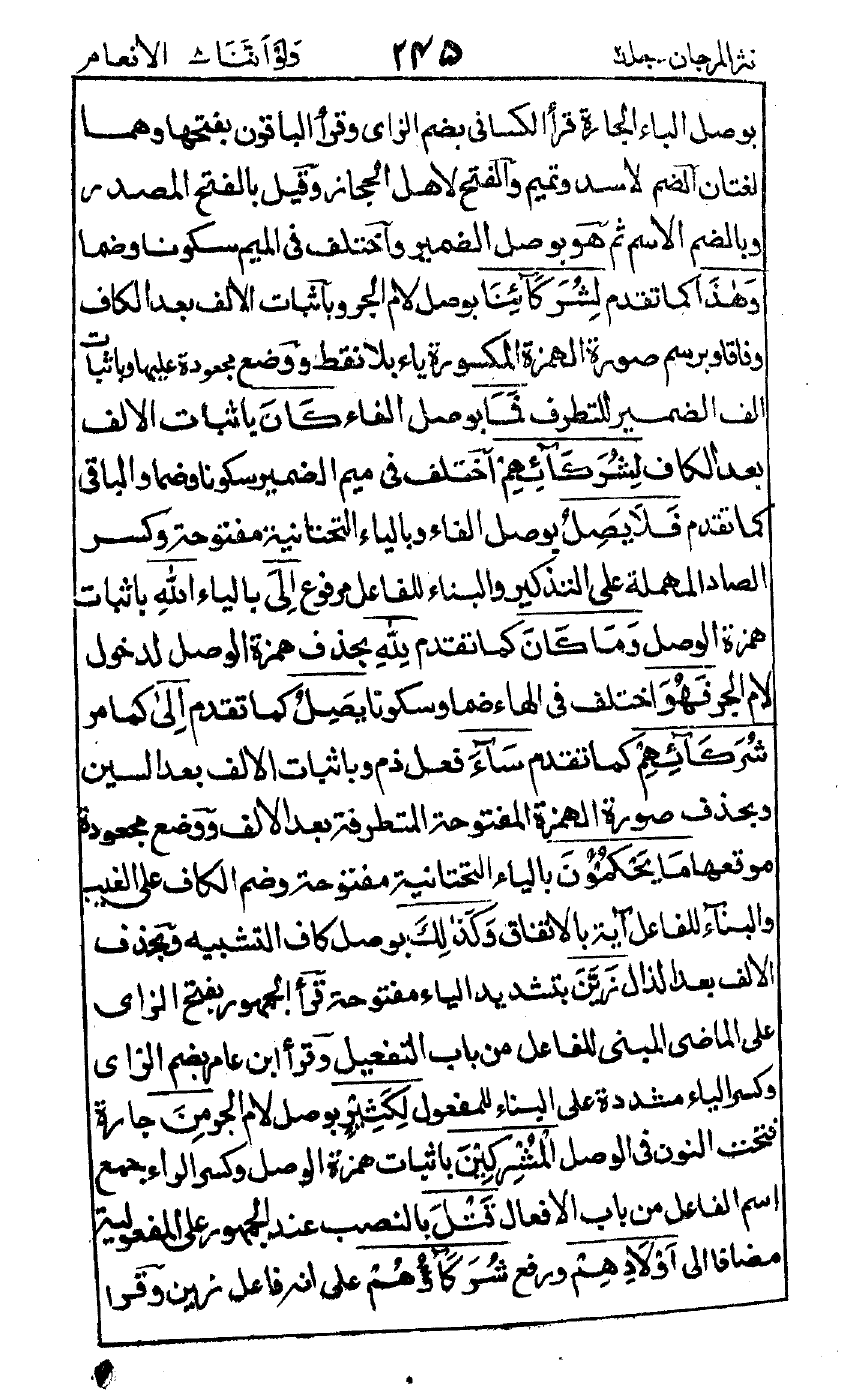 نثر المرجان جلد٢ ٢٤٥ ولواننا ٨ الانعام
بوصل الباء الجارة قرأ الكسائی بضم الزای وقرأ الباقون بفتحها وهما
لغتان الضم لاسد وتمیم والفتح لاهل الحجاز وقیل بالفتح المصدر
وبالضم الاسم ثم هو بوصل الضمیر واختلف فی المیم سکونا وضما
وَهٰذَا کما تقدم لِشُرَكَآئِنَا بوصل لام الجر وباثبات الالف بعد الکاف
وفاقا وبرسم صورة الهمزة المکسورة یاء بلا نقط ووضع مجعودة علیها وباثبات
الف الضمیر للتطرف فَمَا بوصل الفاء كَانَ باثبات الالف
بعد الکاف لِشُرَكَآئِهِمْ اختلف فی میم الضمیر سکونا وضما والباقی
کما تقدم فَلَا يَصِلُ بوصل الفاء وبالیاء التحتانیة مفتوحة وکسر
الصاد المهملة علی التذکیر والبناء للفاعل مرفوع اِلَى بالیاء اللّٰهِ باثبات
همزة الوصل وَمَا كَانَ کما تقدم لِلّٰهِ بحذف همزة الوصل لدخول
لام الجر فَهُوَ اختلف فی الهاء ضما وسکونا يَصِلُ کما تقدم اِلٰى کما مر
شُرَكَآئِهِمْ کما تقدم سَآءَ فعل ذم وباثبات الالف بعد السین
وبحذف صورة الهمزة المفتوحة المتطرفة بعد الالف ووضع مجعودة
موقعها مَا يَحْكُمُوْنَ بالیاء التحتانیة مفتوحة وضم الکاف علی الغیب
والبناء للفاعل آیة بالاتفاق وَكَذٰلِكَ بوصل کاف التشبیه وبحذف
الالف بعد الذال زَيَّنَ بتشدید الیاء مفتوحة قرأ الجمهور بفتح الزای
علی الماضی المبنی للفاعل من باب التفعیل وقرأ ابن عامر بضم الزای
وکسر الیاء مشددة علی البناء للمفعول لِكَثِيْرٍ بوصل لام الجر مِنَ جارة
فتحت النون فی الوصل الْمُشْرِكِيْنَ باثبات همزة الوصل وکسر الراء جمع
اسم الفاعل من باب الافعال قَتْلَ بالنصب عند الجمهور علی المفعولیة
مضافا الی اَوْلَادِهِمْ ورفع شُرَكَآؤُهُمْ علی انه فاعل زین وقرا